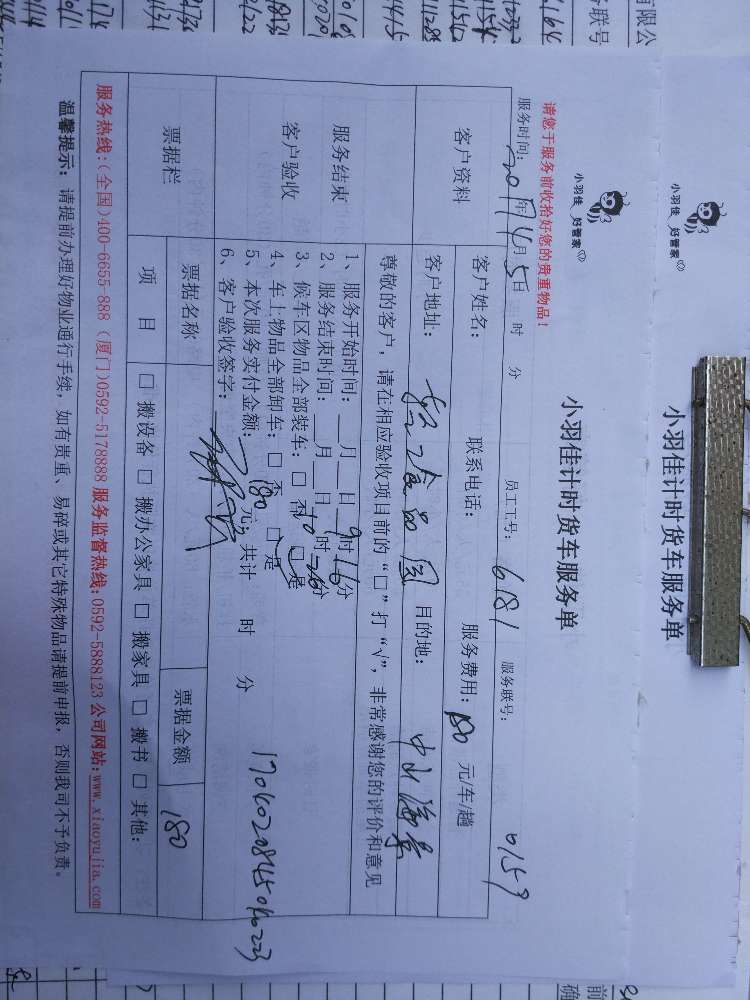 小羽佳 好管家
小羽佳计时货车服务单
小羽佳 好管家
小羽佳计时货车服务单
请您于服务前收拾好您的贵重物品！
服务时间：2017年4月5日 时 分 员工工号：6181 服务联号：0159
客户资料
客户姓名： 联系电话： 服务费用：180元/车/趟
客户地址： 食品园 目的地：中山海景
尊敬的客户，请在相应验收项目前的“□”打“√”，非常感谢您的评价和意见
服务结束
客户验收
1、服务开始时间：__月__日9时16分
2、服务结束时间：__月__日10时20分
3、候车区物品全部装车：□ 否 □ 是
4、车上物品全部卸车：□ 否 □ 是
5、本次服务实付金额：180元；共计 时 分
6、客户验收签字：
票据栏
票据名称 票据金额 180
项 目 □ 搬设备 □ 搬办公家具 □ 搬家具 □ 搬书 □ 其他：
服务热线：(全国)400-6655-888（厦门)0592-5178888 服务监督热线：0592-5888123 公司网站：www.xiaoyujia.com
温馨提示：请提前办理好物业通行手续，如有贵重、易碎或其它特殊物品请提前申报，否则我司不予负责。